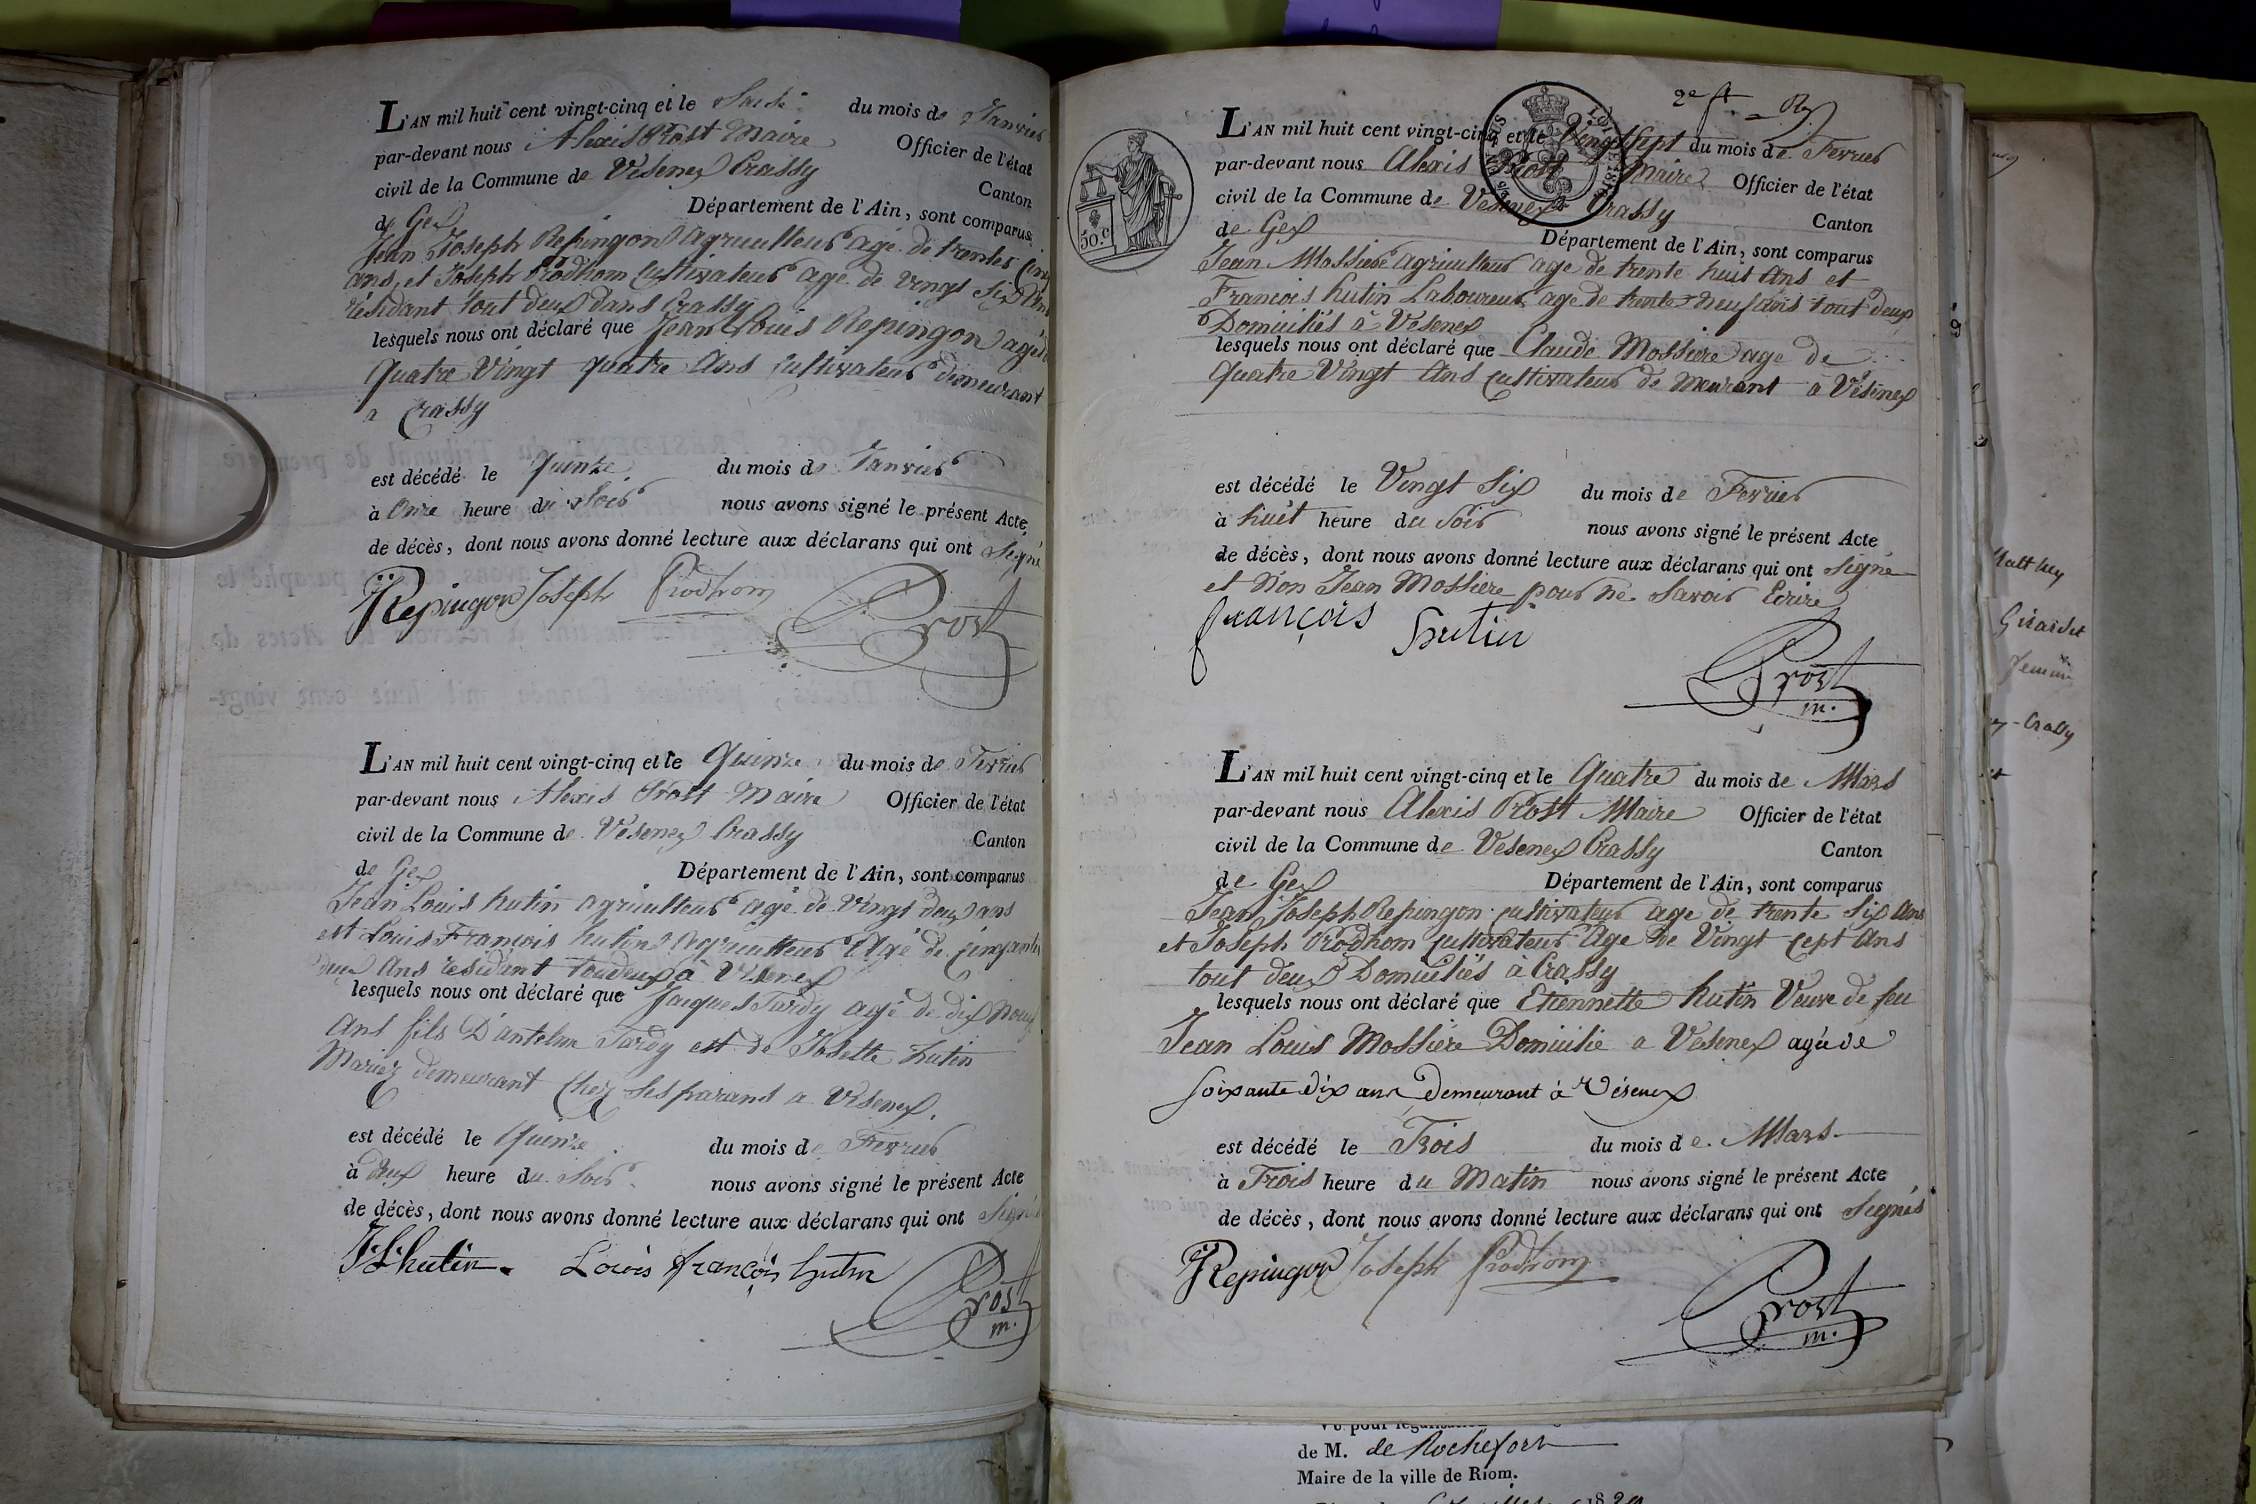 L'AN mil huit cent vingt-cinq et le Saise du mois de Janvier
par-devant nous Alexis Prost Maire Officier de l'état
civil de la Commune de Vesenex Crassy Canton
de Gex Département de l'Ain, sont comparus
Jean Joseph Repingon agriculteur agé de trentes cinq
ans, et Joseph Prodhom cultivateur agé de vingt six Ans
résidant tout deux dans Crassy
lesquels nous ont déclaré que Jean Louis Repingon agé de
quatre Vingt quatre Ans cultivateur demeurant
a Crassy
est décédé le quinze du mois de Janvier
à Onze heure du Soir nous avons signé le présent Acte
de décès, dont nous avons donné lecture aux déclarans qui ont Signé
JJRepingon Joseph Prodhom Prost
L'AN mil huit cent vingt-cinq et le Quinze du mois de Fevrier
par-devant nous Alexis Prost Maire Officier de l'état
civil de la Commune de Vesenex Crassy Canton
de Gex Département de l'Ain, sont comparus
Jean Louis hutin agriculteur agé de vingt deux ans
est Louis François hutin Agriculteur Agé de cinquante
deux Ans résidant toudeux à Vesenex
lesquels nous ont déclaré que Jacques Tardy agé de dix nouf
Ans fils D'antelme Tardy est de Josette hutin
Mariez demeurant Chez Ses parans a Vesenex.
est décédé le Quinze du mois de Fevrier
à deux heure du Soir nous avons signé le présent Acte
de décès, dont nous avons donné lecture aux déclarans qui ont Signés
JLhutin. Louis françois hutin Prost
m.
2e ft
L'AN mil huit cent vingt-cinq et le Vingt Sept du mois de Fevrier
par-devant nous Alexis Prost Maire Officier de l'état
civil de la Commune de Vesenex Crassy Canton
50.c
de Gex Département de l'Ain, sont comparus
Jean Mossiere agriculteur age de trente huit Ans et
Francois hutin Laboureur age de trente neuf ans tout deux
Domiciliés à Vesenex
lesquels nous ont déclaré que Claude Mossiere age de
quatre Vingt Ans cultivateur de meurant à Vésenex
est décédé le Vingt Six du mois de Fevrier
à huit heure du Soir nous avons signé le présent Acte
de décès, dont nous avons donné lecture aux déclarans qui ont Signé
et Non Jean Mossiere pour ne Savoir Ecrire
françois hutin
Prost
m.
L'AN mil huit cent vingt-cinq et le Quatre du mois de Mars
par-devant nous Alexis Prost Maire Officier de l'état
civil de la Commune de Vesenex Crassy Canton
de Gex Département de l'Ain, sont comparus
Jean Joseph Repingon cultivateur age de trente Six Ans
et Joseph Prodhom cultivateur Age de Vingt cept Ans
tout deux Domiciliés à Crassy
lesquels nous ont déclaré que Etiennette hutin Veuve de feu
Jean Louis Mossiere Domicilie a Vesenex agée de
soixante dix ans Demeurant à Vésenex
est décédé le Trois du mois de Mars
à Trois heure du Matin nous avons signé le présent Acte
de décès, dont nous avons donné lecture aux déclarans qui ont Signés
JJRepingon Joseph Prodhom
Prost
m.
Girardet
-Crassy
de M. de Rochefort
Maire de la ville de Riom.